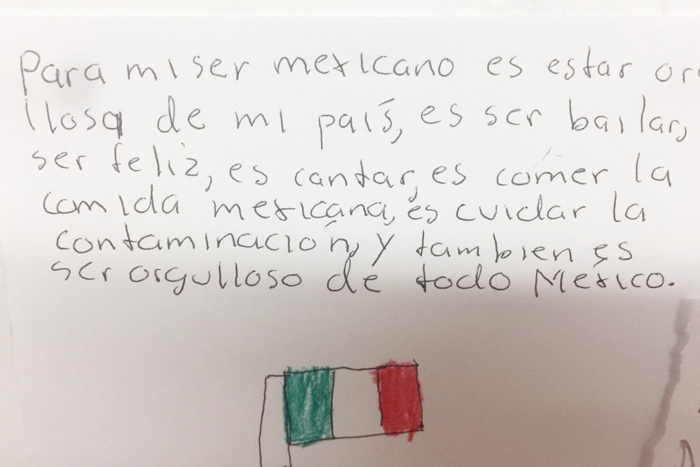 Para mi ser mexicano es estar or
llosa de mi país, es ser bailar,
ser feliz, es cantar, es comer la
comida mexicana, es cuidar la
contaminación, y tambien es
ser orgulloso de todo México.